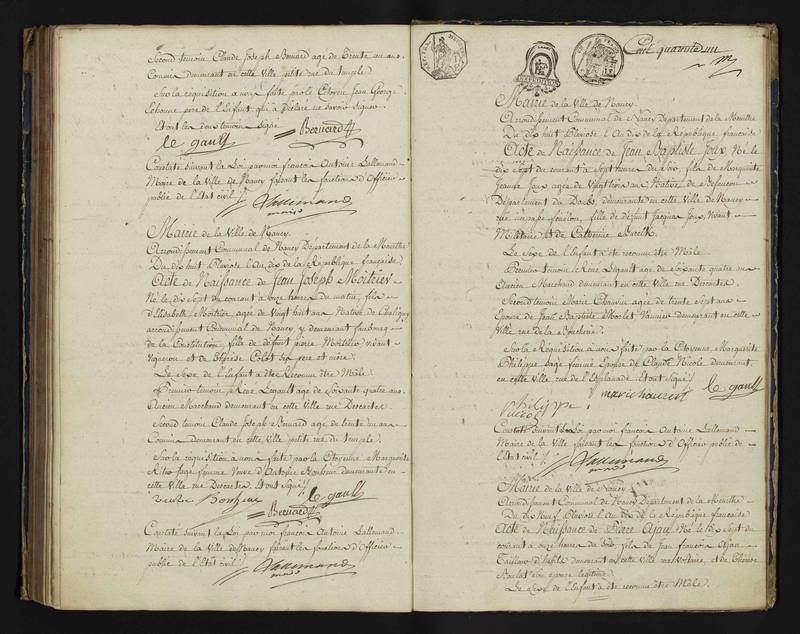 Second temoin Claude Joseph Bernard agé de Trente un ans
Commis demeurant en cette Ville petite rue du temple.
Sur la requisition a nous faite par le Citoyen Jean George
pere de l'Enfant, qui a declaré ne savoir signer
Et ont les deux temoins signé
le gault Bernard
Constaté suivant la Loi par moi françois Antoine Lallemand
Maire de la Ville de Nancy faisant les fonctions d'Officier
public de l'Etat civil
Lallemand
maire
Mairie de la Ville de Nancy.
Arrondissement Communal de Nancy Departement de la Meurthe
Du dix huit Pluviose l'An dix de la République française
Acte de Naissance de Jean Joseph Moitrier
Né le dix Sept du courant à onze heures du matin, fils
d'Elisabeth Moitrier, agée de Vingt huit ans Native de
arrondissement Communal de Nancy y demeurant faubourg
de la Constitution, fille de défunt Moitrier vivant
Vigneron et de Thérèse Colot ses pere et mère.
Le Sexe de l'enfant a été Reconnu être Mâle.
Premier temoin Rene Legault agé de Soixante quatre ans
Ancien Marchand demeurant en cette Ville rue Descartes.
Second temoin Claude Joseph Bernard agé de trente un ans
Commis demeurant en cette ville petite rue du temple.
Sur la requisition à nous faite par la Citoyenne Marguerite
Sage femme, Veuve d'Antoine Bonheur demeurante en
cette Ville rue Descartes. Et ont signé
veuve Bonheur le gault
Bernard
Constaté suivant la Loi par moi françois Antoine Lallemand
Maire de la Ville de Nancy faisant les fonctions d'Officier
public de l'Etat civil
Lallemand
maire
Cent quarante un
Mairie de la Ville de Nancy.
Arrondissement Communal de Nancy Departement de la Meurthe
Du dix huit Pluviose l'An dix de la République française
Acte de Naissance de Jean Baptiste Joux Né le
dix Sept du courant à Sept heures du Soir, fils de Marguerite
Jeanne Joux agée de Vingt trois ans Native de Besançon
Département du Doubs, demeurante en cette Ville de Nancy
rue fénélon, fille de défunt Jacques Joux, vivant
Militaire et de Catherine
Le Sexe de l'enfant a été reconnu être Mâle
Premier temoin Rene Legault agé de Soixante quatre ans
Ancien Marchand demeurant en cette Ville rue Descartes.
Second temoin Marie Chaurin agée de trente Sept ans
Epouse de Jean Baptiste Morlet Vannier demeurant en cette
Ville rue de la Boucherie.
Sur la Réquisition à nous faite par la Citoyenne Marguerite
Philippe Sage femme Epouse de Claude Nicole demeurant
en cette Ville rue de l'Esplanade. Et ont Signé
le gault
Philippe
Constaté suivant la Loi par moi françois Antoine Lallemand
Maire de la Ville faisant les fonctions d'Officier public de
l'Etat civil
Lallemand
maire
Mairie de la Ville de Nancy
Arrondissement Communal de Nancy Departement de la Meurthe
Du dix Neuf Pluviose l'An dix de la République française
Acte de Naissance de Pierre Ajan Né le dix Sept du
courant à onze heures du Soir, fils de Jean françois Ajan
Tailleur d'habits demeurant en cette Ville rue Voltaire, et de Thérèse
son epouse legitime.
Le Sexe de l'Enfant a été reconnu être Mâle.